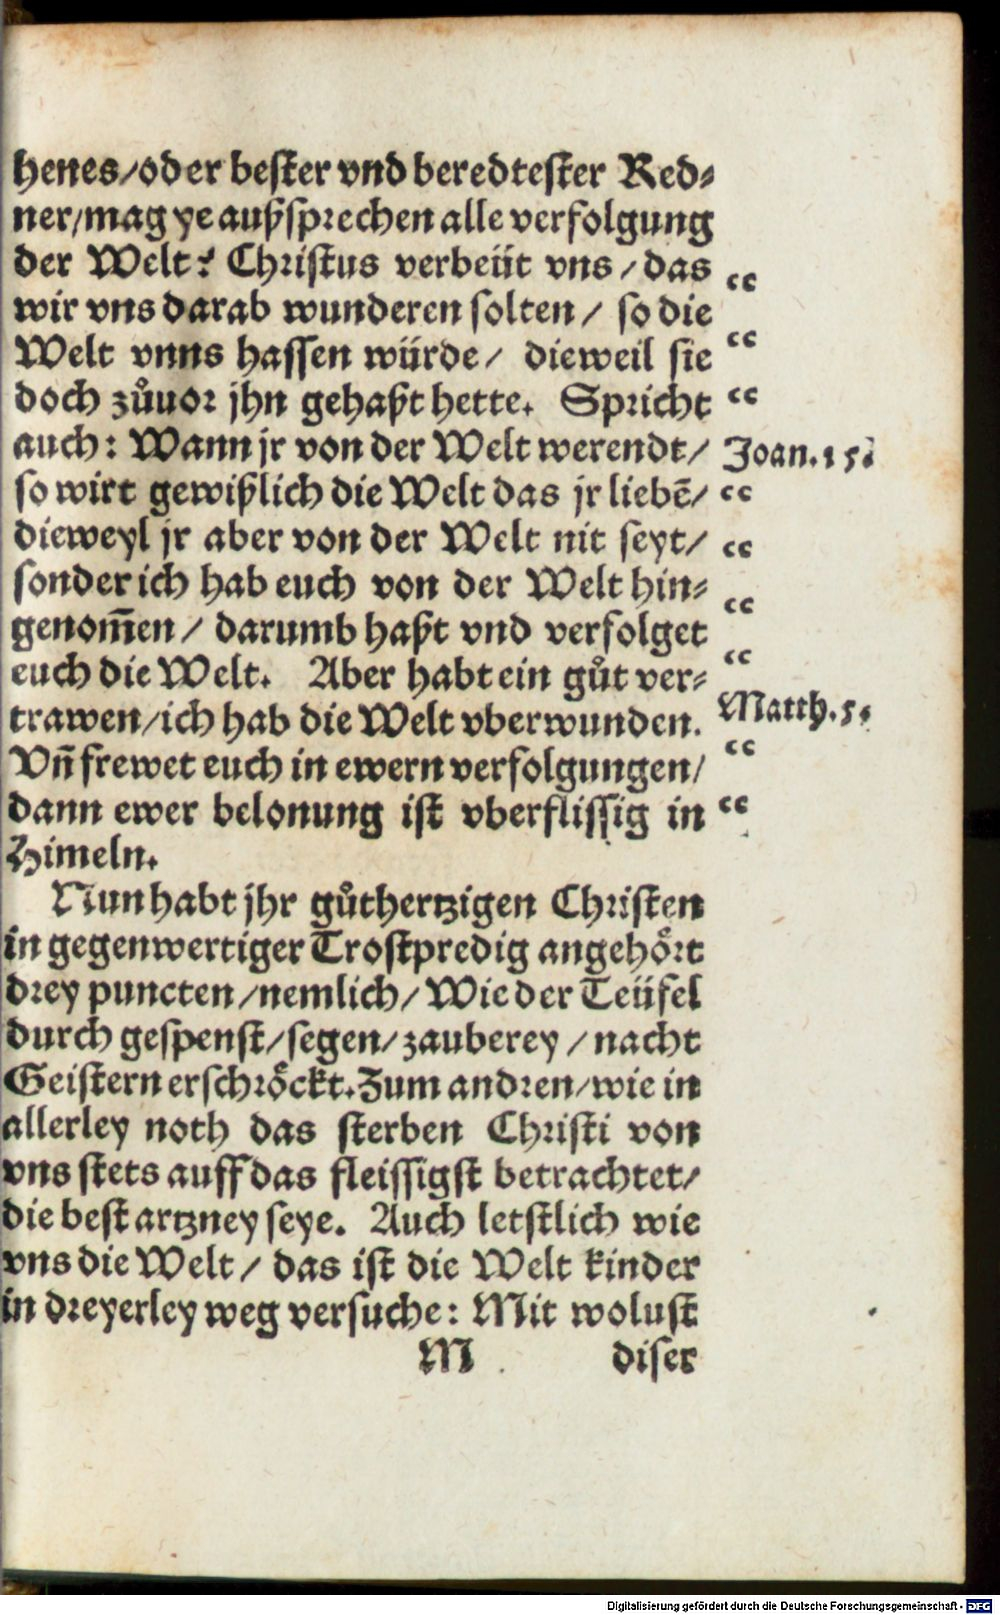 henes/oder bester vnd beredtester Red⸗
ner/mag ye außsprechen alle verfolgung
der Welt? Christus verbeüt vns/das
wir vns darab wunderen solten/ so die
Welt vnns hassen würde/ dieweil sie
doch zůuor jhn gehaßt hette. Spricht
auch: Wann jr von der Welt werendt/
Joan. 15.
so wirt gewißlich die Welt das jr liebē/
dieweyl jr aber von der Welt nit seyt/
sonder ich hab euch von der Welt hin⸗
genom̄en/ darumb haßt vnd verfolget
euch die Welt. Aber habt ein gůt ver⸗
trawen/ich hab die Welt vberwunden.
Matth. 5.
Vn̄ frewet euch in ewern verfolgungen/
dann ewer belonung ist vberflissig in
Himeln.
Nun habt jhr gůthertzigen Christen
in gegenwertiger Trostpredig angehoͤrt
drey puncten/nemlich/Wie der Teüfel
durch gespenst/segen/zauberey/nacht
Geistern erschroͤckt. Zum andren/wie in
allerley noth das sterben Christi von
vns stets auff das fleissigst betrachtet/
die best artzney seye. Auch letstlich wie
vns die Welt/ das ist die Welt kinder
in dreyerley weg versuche: Mit wolust
M diser
Digitalisierung gefördert durch die Deutsche Forschungsgemeinschaft - DFG